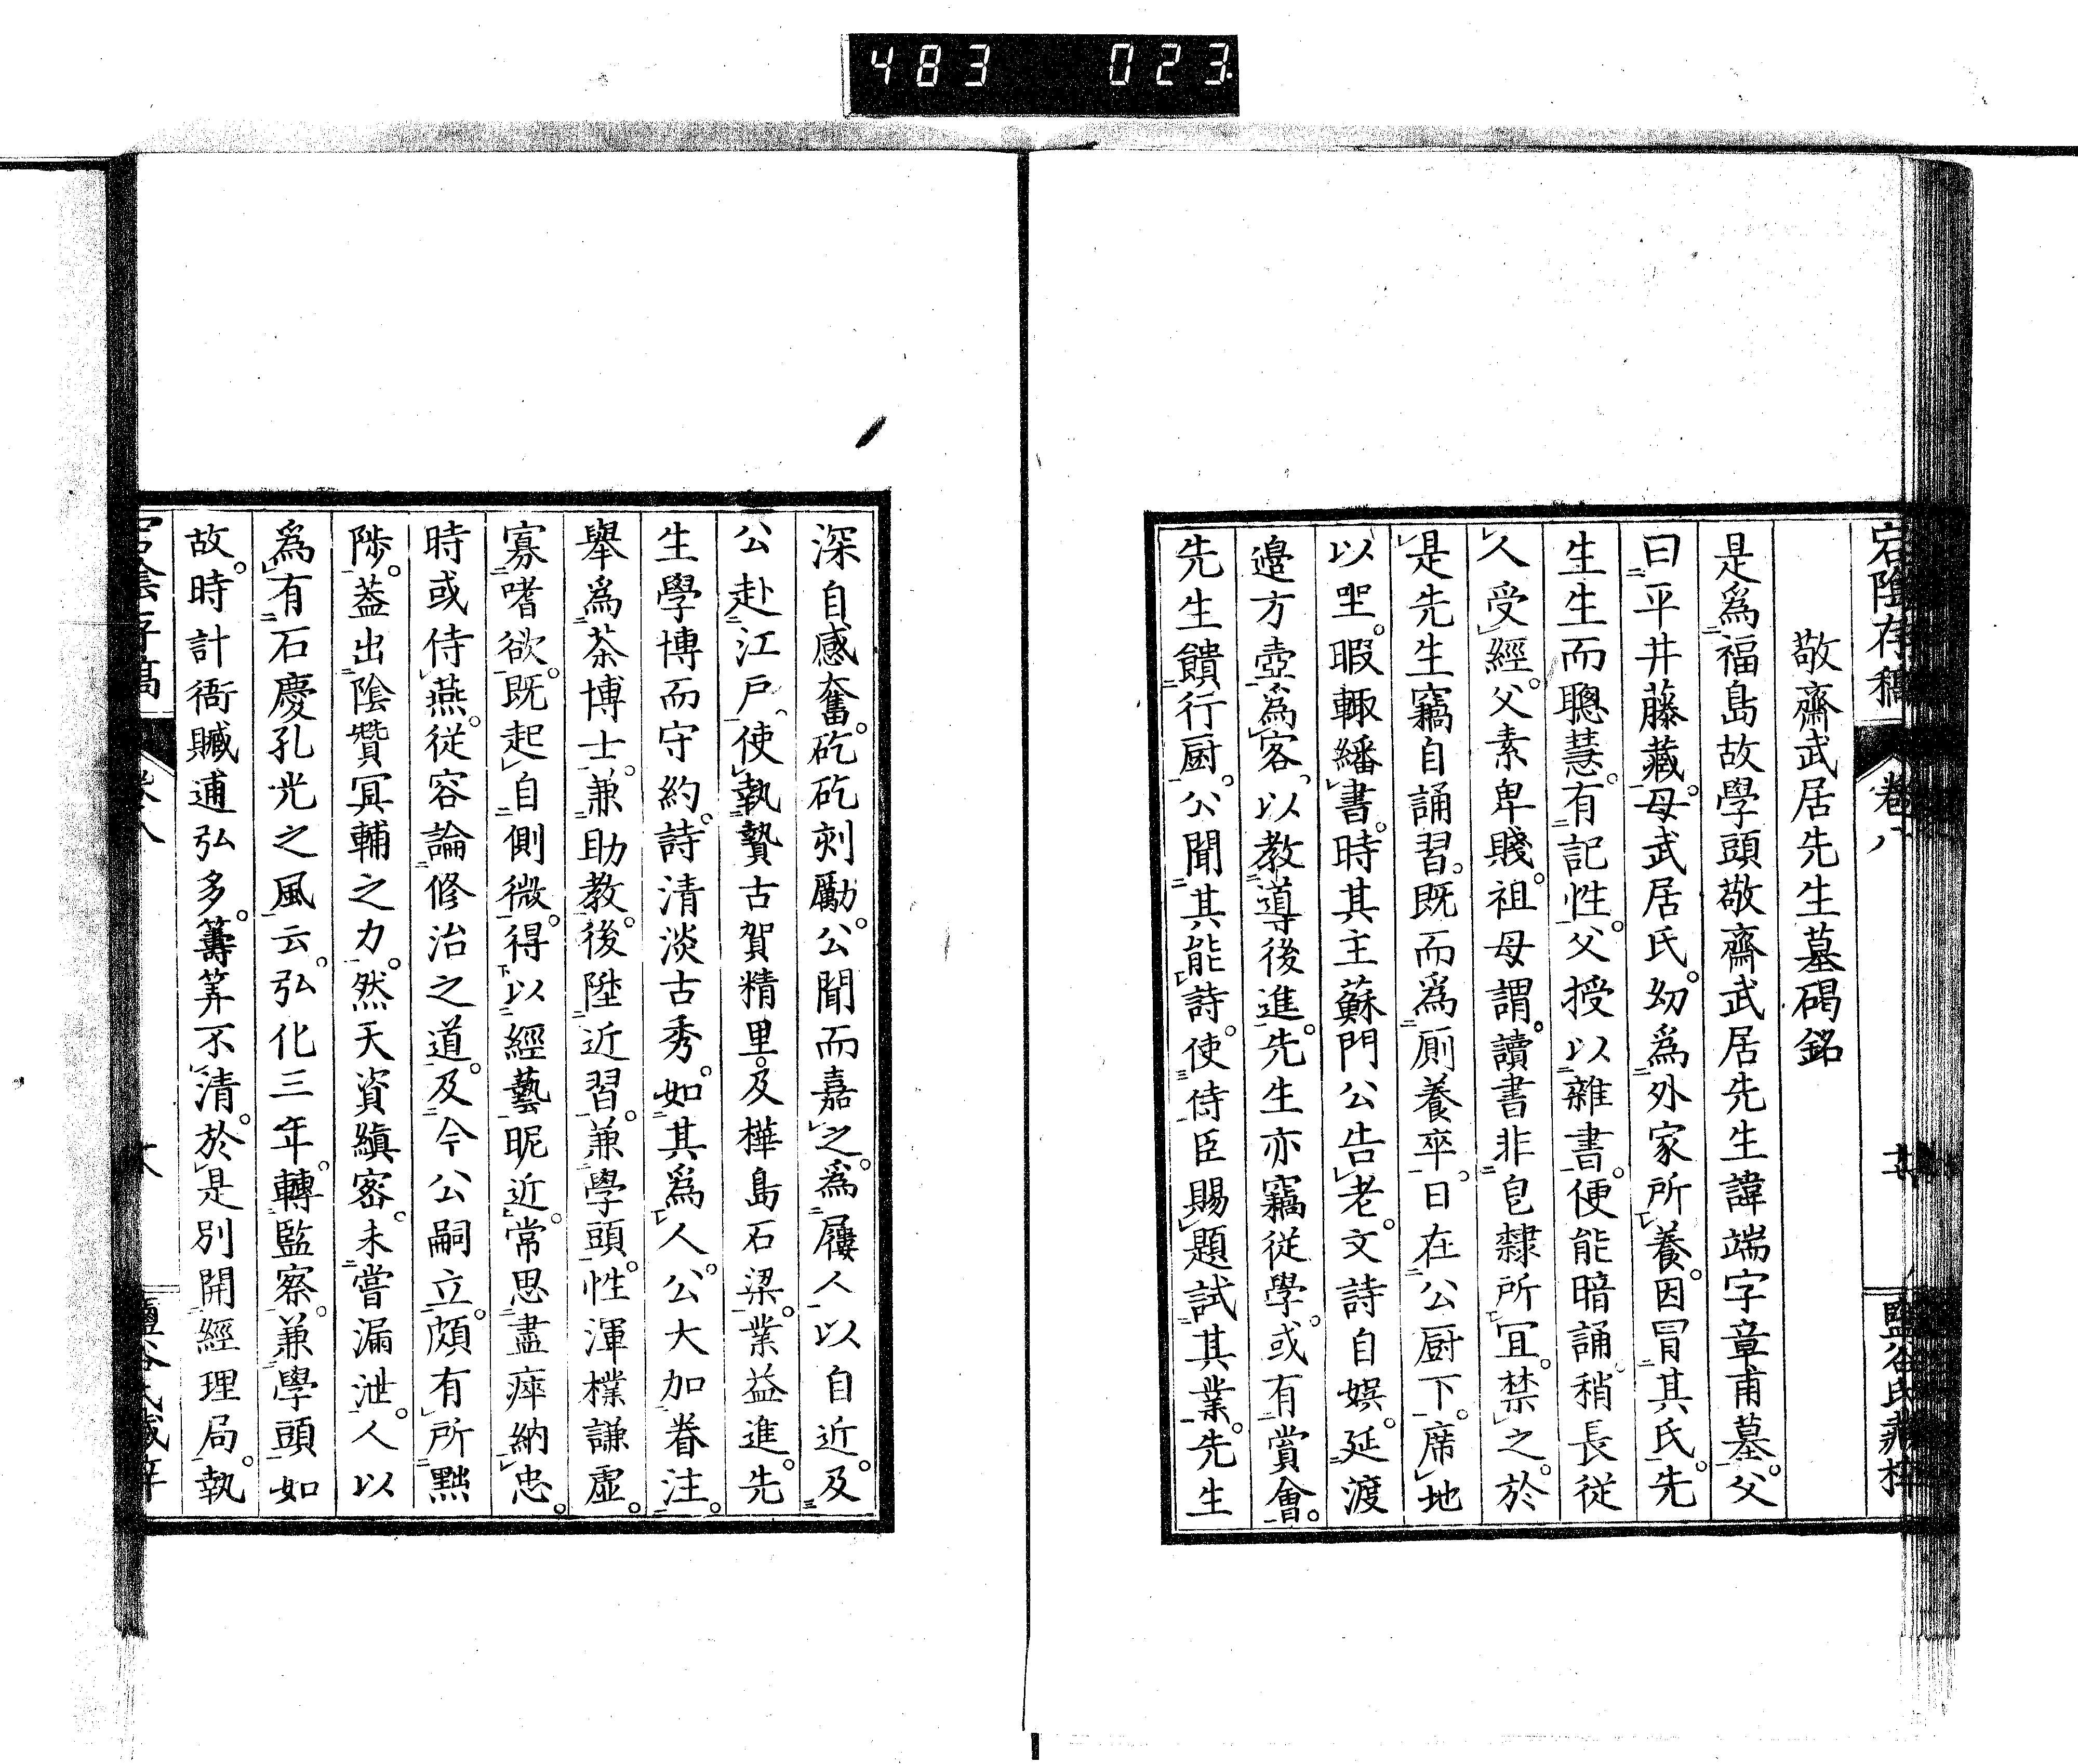 483 023
宕陰存稿 卷八
敬齋武居先生墓碣銘
是爲福島故學頭敬齋武居先生諱端字章甫墓。父
曰平井藤藏。母武居氏。幼爲外家所養。因冒其氏。先
生生而聰慧。有記性。父授以雜書。便能暗誦。稍長從
人受經。父素卑賤。祖母謂。讀書非皀隸所宜。禁之。於
是先生竊自誦習。既而爲厠養卒。日在公厨下。席地
以坐。暇輙繙書。時其主蘇門公告老。文詩自娯。延渡
邉方壺爲客。以教導後進。先生亦竊從學。或有賞會。
先生饋行厨。公聞其能詩。使侍臣賜題試其業。先生
深自感奮。矻矻刻勵。公聞而嘉之。爲屨人以自近。及
公赴江戸。使執贄古賀精里。及樺島石梁。業益進。先
生學博而守約。詩清淡古秀。如其爲人。公大加眷注。
舉爲茶博士。兼助教。後陞近習。兼學頭。性渾樸謙虛。
寡嗜欲。既起自側微。得以經藝昵近。常思盡瘁納忠。
時或侍燕。從容論修治之道。及今公嗣立。頗有所黜
陟。葢出陰贊冥輔之力。然天資縝宻。未嘗漏泄。人以
爲有石慶孔光之風云。弘化三年。轉監察。兼學頭如
故。時計衙贓逋弘多。籌筭不清。於是別開經理局。執